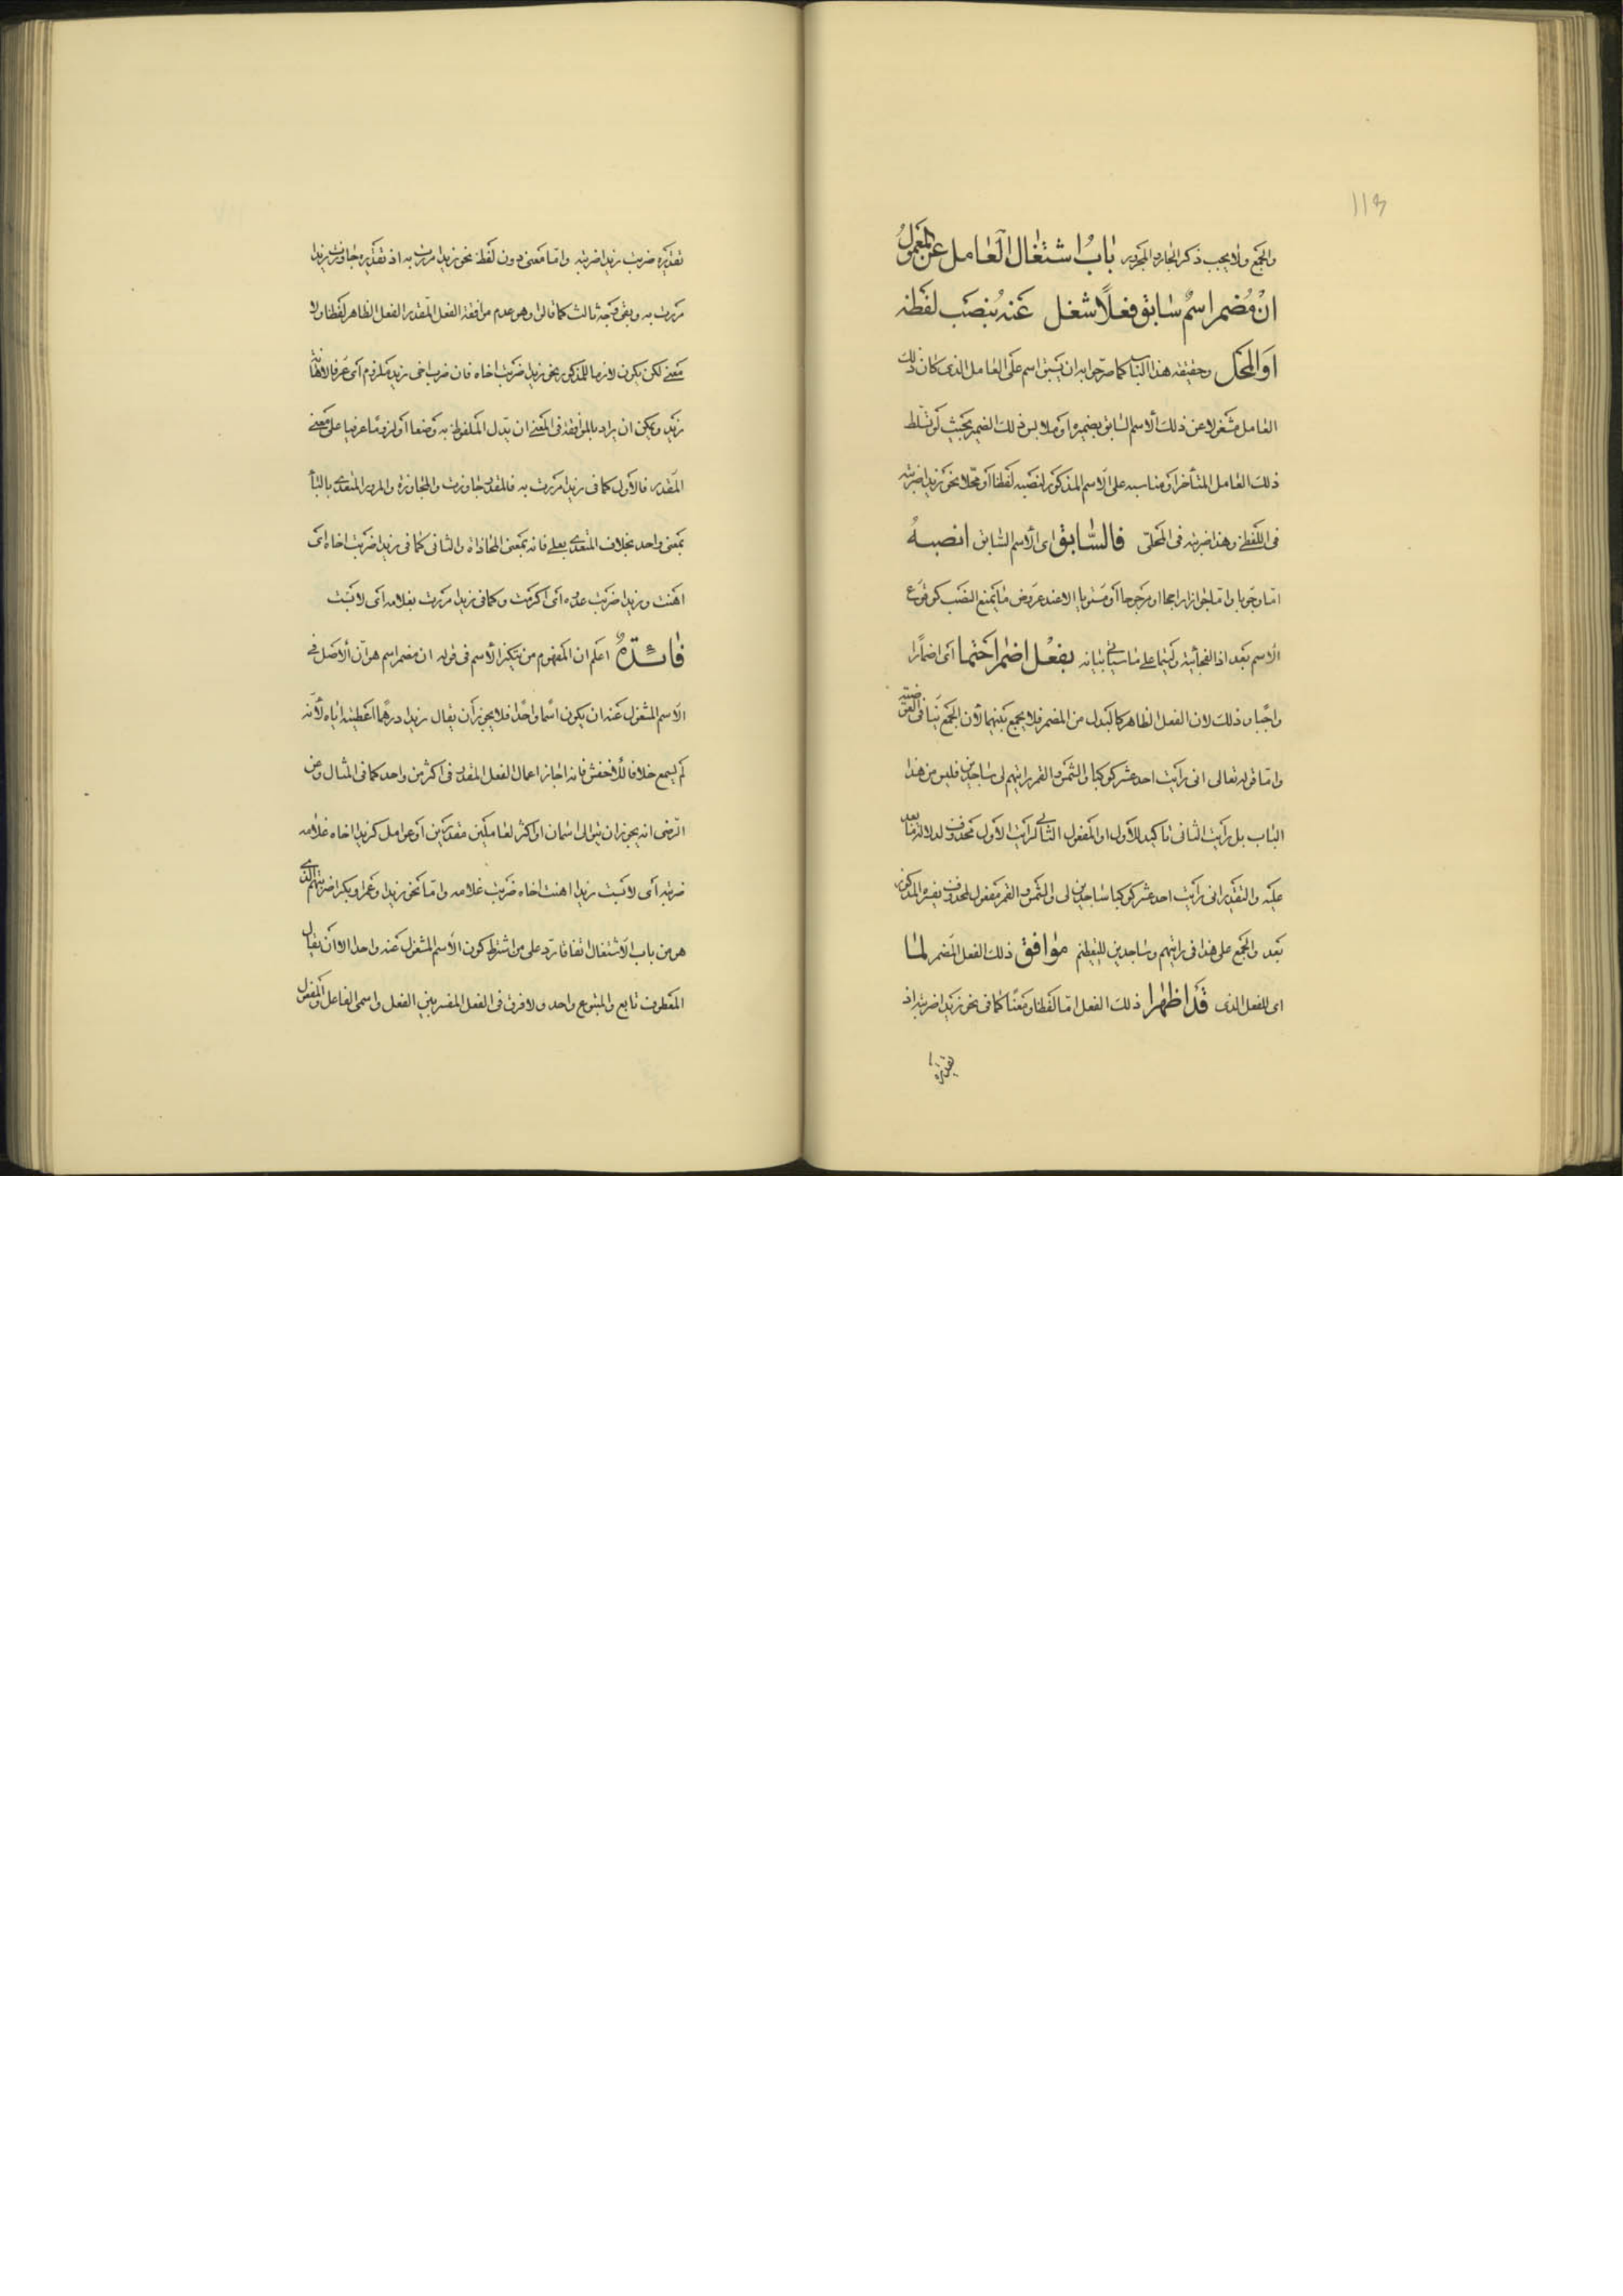 والجمع ولا يجب ذكر الجار والمجرور باب اشتغال العامل عن المعمول
ان مضمر اسم سابق فعلا شغل عنه بنصب لفظه
او المحل وحقيقة هذا الباب كما صرحوا به ان يسبق اسم على العامل الذى كان ذلك
العامل مشغولا عن ذلك الاسم السابق بضميره او ملابس ذلك الضمير بحيث لو تسلط
ذلك العامل المتأخر او مناسبه على الاسم المذكور لنصبه لفظا او محلا نحو زيدا ضربته
فى اللفظى وهذا ضربته فى المحلى فالسابق اى الاسم السابق انصبه
اما وجوبا واما جوازا راجحا او مرجوحا او مستويا الا عند عروض ما يمنع النصب كوقوع
الاسم بعد اذا الفجائية وليتما على ما سيأتى بيانه بفعل اضمر احتما اى اضمارا
واجبا وذلك لان الفعل الظاهر كالبدل من المضمر فلا يجمع بينهما لأن الجمع ينافى العوضية
واما قوله تعالى انى رأيت احد عشر كوكبا والشمس والقمر رايتهم لى ساجدين فليس من هذا
الباب بل رأيت الثانى تاكيد للأول او المفعول الثانى لرأيت الأول محذوف لدلالة ما بعده
عليه والتقدير انى رأيت احد عشر كوكبا ساجدين لى والشمس والقمر مفعول لمحذوف يفسره المذكور
بعد والجمع على هذا فى رايتهم وساجدين للتعظيم موافق ذلك الفعل المضمر لما
اى للفعل الذى قد اظهرا ذلك الفعل اما لفظا ومعنا كما فى نحو زيدا ضربته اذ
تقديره
113
تقديره ضربت زيدا ضربته واما معنى دون لفظ نحو زيدا مررت به اذ تقديره جاوزت زيدا
مررت به وبقى وجه ثالث كما قالوا وهو عدم موافقة الفعل المقدر الفعل الظاهر لفظا ولا
معنى لكن يكون لازما للمذكور نحو زيدا ضربت اخاه فان ضرب اخى زيد ملزوم اى عرفا لاهانة
زيد ويمكن ان يراد بالموافقة فى المعنى ان يدل الملفوظ به وضعا او لزوما عرفيا على معنى
المقدر فالأول كما فى زيدا مررت به فالمقدر جاوزت والمجاوزة والمرور المتعدى بالباء
بمعنى واحد بخلاف المتعدى بعلى فانه بمعنى المحاذاة والثانى كما فى زيدا ضربت اخاه اى
اهنت وزيدا ضربت عدوه اى اكرمت وكما فى زيدا مررت بغلامه اى لابست
فائدة اعلم ان المفهوم من تنكير الأسم فى قوله ان مضمر اسم هو ان الأصل فى
الاسم المشغول عنه ان يكون اسما واحدا فلا يجوز أن يقال زيدا درهما اعطيته اياه لأنه
لم يسمع خلافا للأخفش فانه اجاز اعمال الفعل المقدر فى اكثر من واحد كما فى المثال وعن
الرضى انه يجوز ان يتوالى اسمان او اكثر لعاملين مقدرين او عوامل كزيدا اخاه غلامه
ضربته اى لابست زيدا اهنت اخاه ضربت غلامه واما نحو زيدا وعمرا وبكرا ضربتهم الذى
هو من باب الاشتغال اتفاقا رد على من اشترط كون الاسم المشغول عنه واحدا الا ان يقال
المعطوف تابع والمتبوع واحد ولا فرق فى الفعل المفسر بين الفعل واسمى الفاعل والمفعول